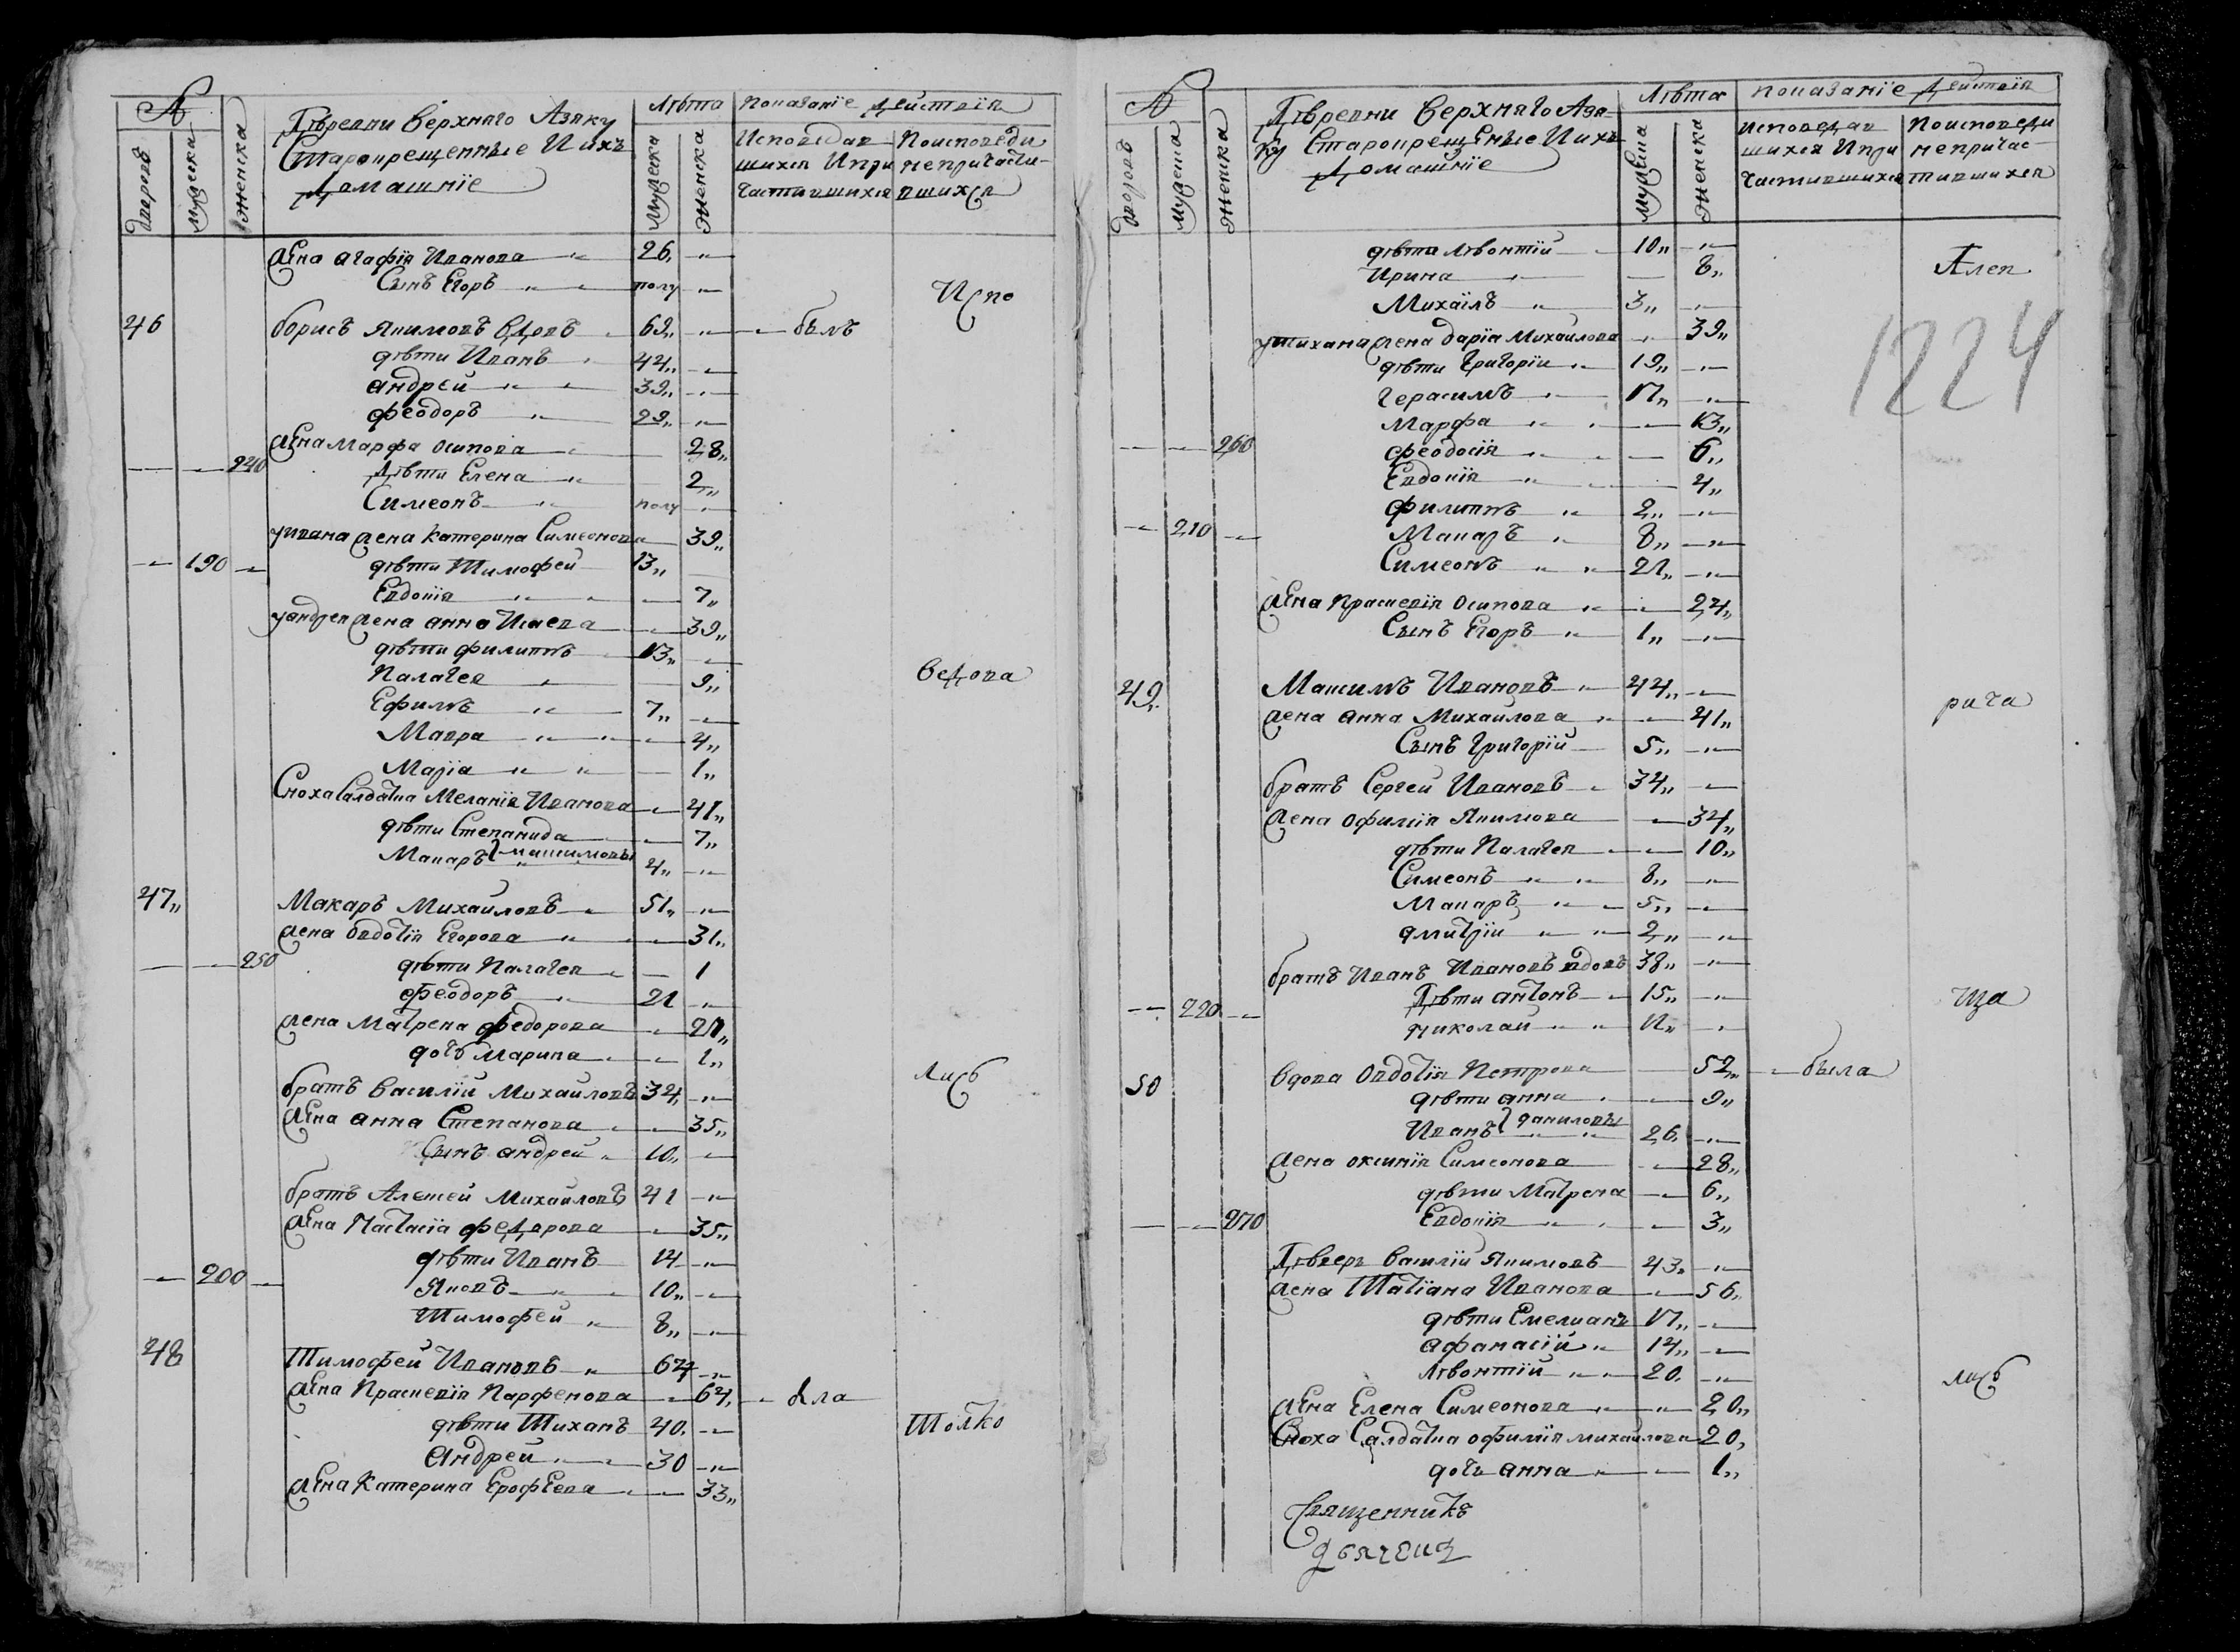 №
Деревни верхняго Азяку
Старокрещенные Ихъ
Домашнїе
Лѣта
показанїе действїя
дворовъ
мужска
женска
мужска
женска
Исповедав
шихся Ипри
частившихся
Поисповеди
непричасти-
вшихся
жена агафїя Иванова 26,
Сынъ Егоръ полу
Испо
46 борисъ Якимовъ вдовъ 69„ былъ
дѣти Иванъ 44„
андрей 39„
феодоръ 29„
жена марфа осипова 28„
240 дѣти Елена 2„
Симеонъ полу
уивана жена катерина Симеонова 39„
190 дѣти Тимофей 13„
Евдокїя 7„
уандрея жена анна Исаева 39„
дѣти филиппъ 13„
Палагея 9„ ведова
Ефимъ 7„
Мавра 4„
Марїа 1„
Сноха Салдатка Меланїя Иванова 41„
дѣти Степанида 7„
Макаръ максимовы 4„
47„ Макаръ Михайловъ 51„
жена овдотїя Егорова 31„
250 дѣти Палагея 1
феодоръ 21
жена Матрена федорова 21„
дочь Марина 1„
лись
братъ василїй Михайловъ 34„
жена анна Степанова 35„
Сынъ андрей 10„
братъ Алексей Михайловъ 41
жена Настасїа федорова 35„
дѣти Иванъ 14
200 Яковъ 10„
Тимофей 8„
48 Тимофей Ивановъ 64
жена Прасковїя Парфенова 64, была
дѣти Тиханъ 40. Толко
андрей 30
жена катерина ЕрофЕева 33„
№
Деревни верхняго Азя
ку Старокрещеные Ихъ
Домашнїе
Лѣта
показанїе действїя
дворовъ
мужска
женска
мужска
женска
исповедав
шихся Ипри
частившихся
Поисповеди
непричас-
тившихся
дѣти Лѣвонтїй 10„
Ирина 8„ Алек
Михайлъ 3„
1224
утихана жена дарїа Михайлова 39„
дѣти Григорїи 19„
герасимъ 17„
Марфа 13„
260 феодосїя 6„
Евдокїя 4„
филиппъ 2„
210 Макаръ 8„
Симеонъ 21„
жена прасковїя осипова 24„
Сынъ Егоръ 1„
49„ Максимъ Ивановъ 44„
жена анна Михайлова 41„ рича
Сынъ Григорїй 5„
братъ Сергей Ивановъ 34„
жена офимїя Якимова 34„
дѣти Палагея 10„
Симеонъ 8„
Макаръ 5„
дмитрїи 2„
братъ Иванъ Ивановъ вдовъ 38„
220 Дѣти антонъ 15„ ща
николай 12„
50 вдова овдотїя Петрова 52„ была
дѣти анна 9„
Иванъ даниловы 26.
жена оксинїя Симеонова 28„
дѣти Матрена 6„
270 Евдокїя 3„
Дѣверь василїи Якимовъ 43„
жена Татїана Иванова 56„
дѣти Емелианъ 17„
афанасїй 14„
Лѣвонтїй 20. лись
жена Елена Симеонова 20„
Сноха Салдатка офимїя михайлова 20,
дочь анна 1„
Священникъ